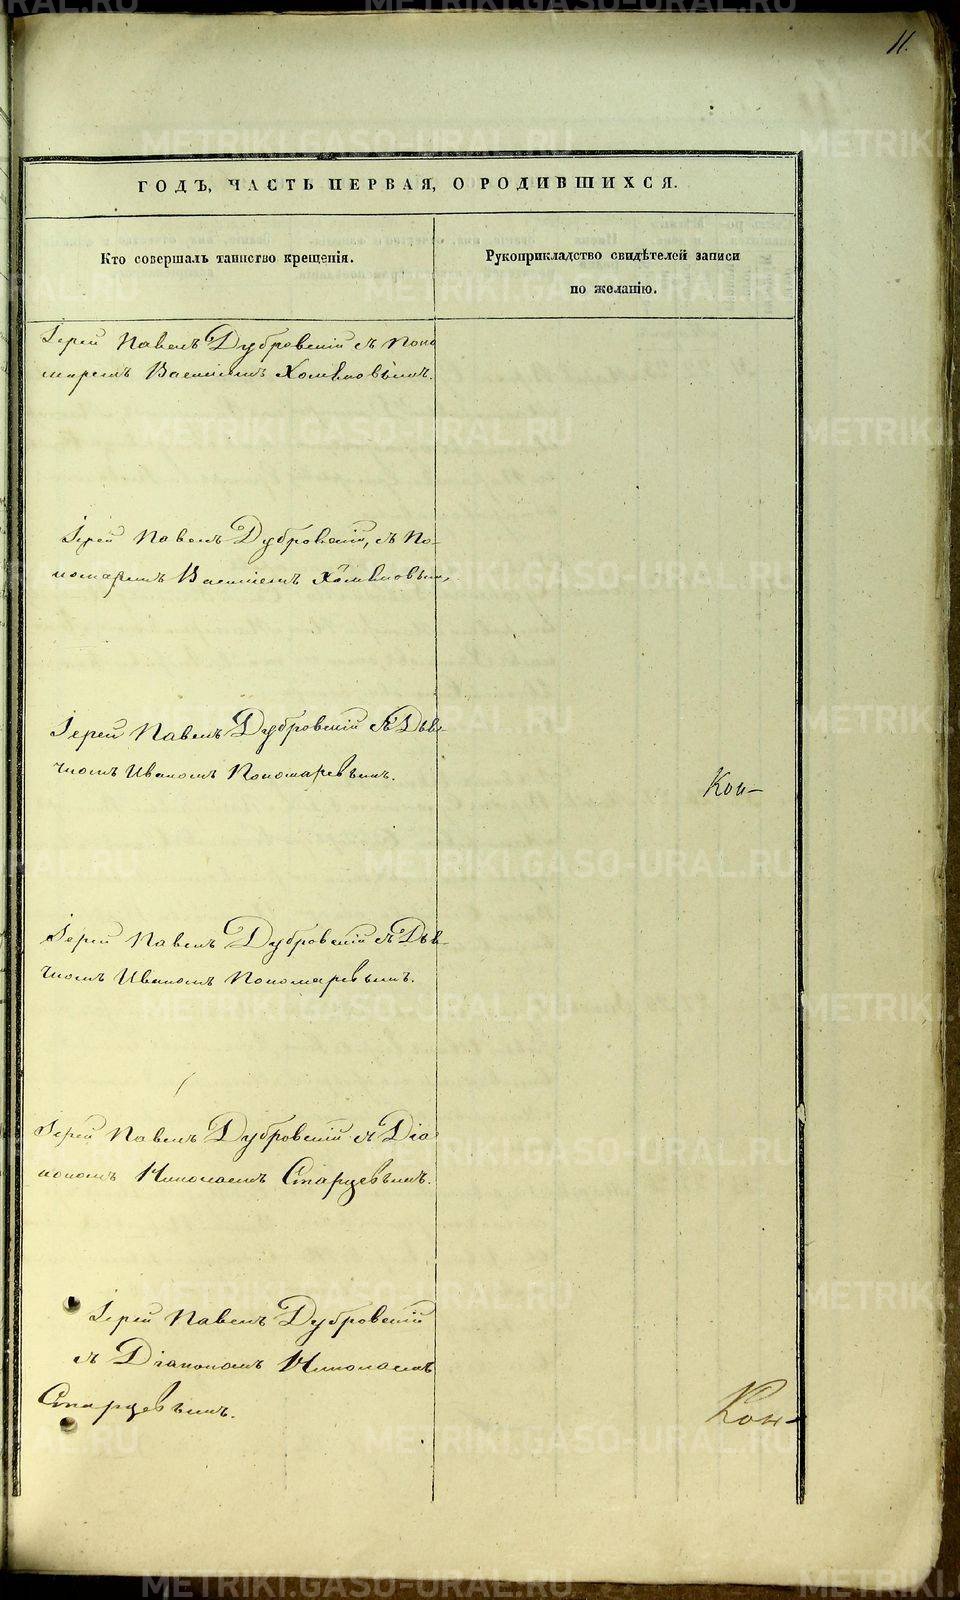 11.
ГОДЪ, ЧАСТЬ ПЕРВАЯ, О РОДИВШИХСЯ.
Кто совершалъ таинство крещенія.
Рукоприкладство свидѣтелей записи
по желанію.
Іерей Павелъ Дубровскій съ Поно
маремъ Василіемъ Хомяковымъ.
Іерей Павелъ Дубровскій, съ По-
номаремъ Василіемъ Хомяковымъ,
Іерей Павелъ Дубровскій съ Дья-
чкомъ Иваномъ Пономаревымъ.
Кон-
Іерей Павелъ Дубровскій съ Дья-
чкомъ Иваномъ Пономаревымъ.
Іерей Павелъ Дубровскій съ Діа
кономъ Николаемъ Старцевымъ.
Іерей Павелъ Дубровскій
съ Діакономъ Николаемъ
Старцевымъ.
Кон-
METRIKI.GASO-URAL.RU